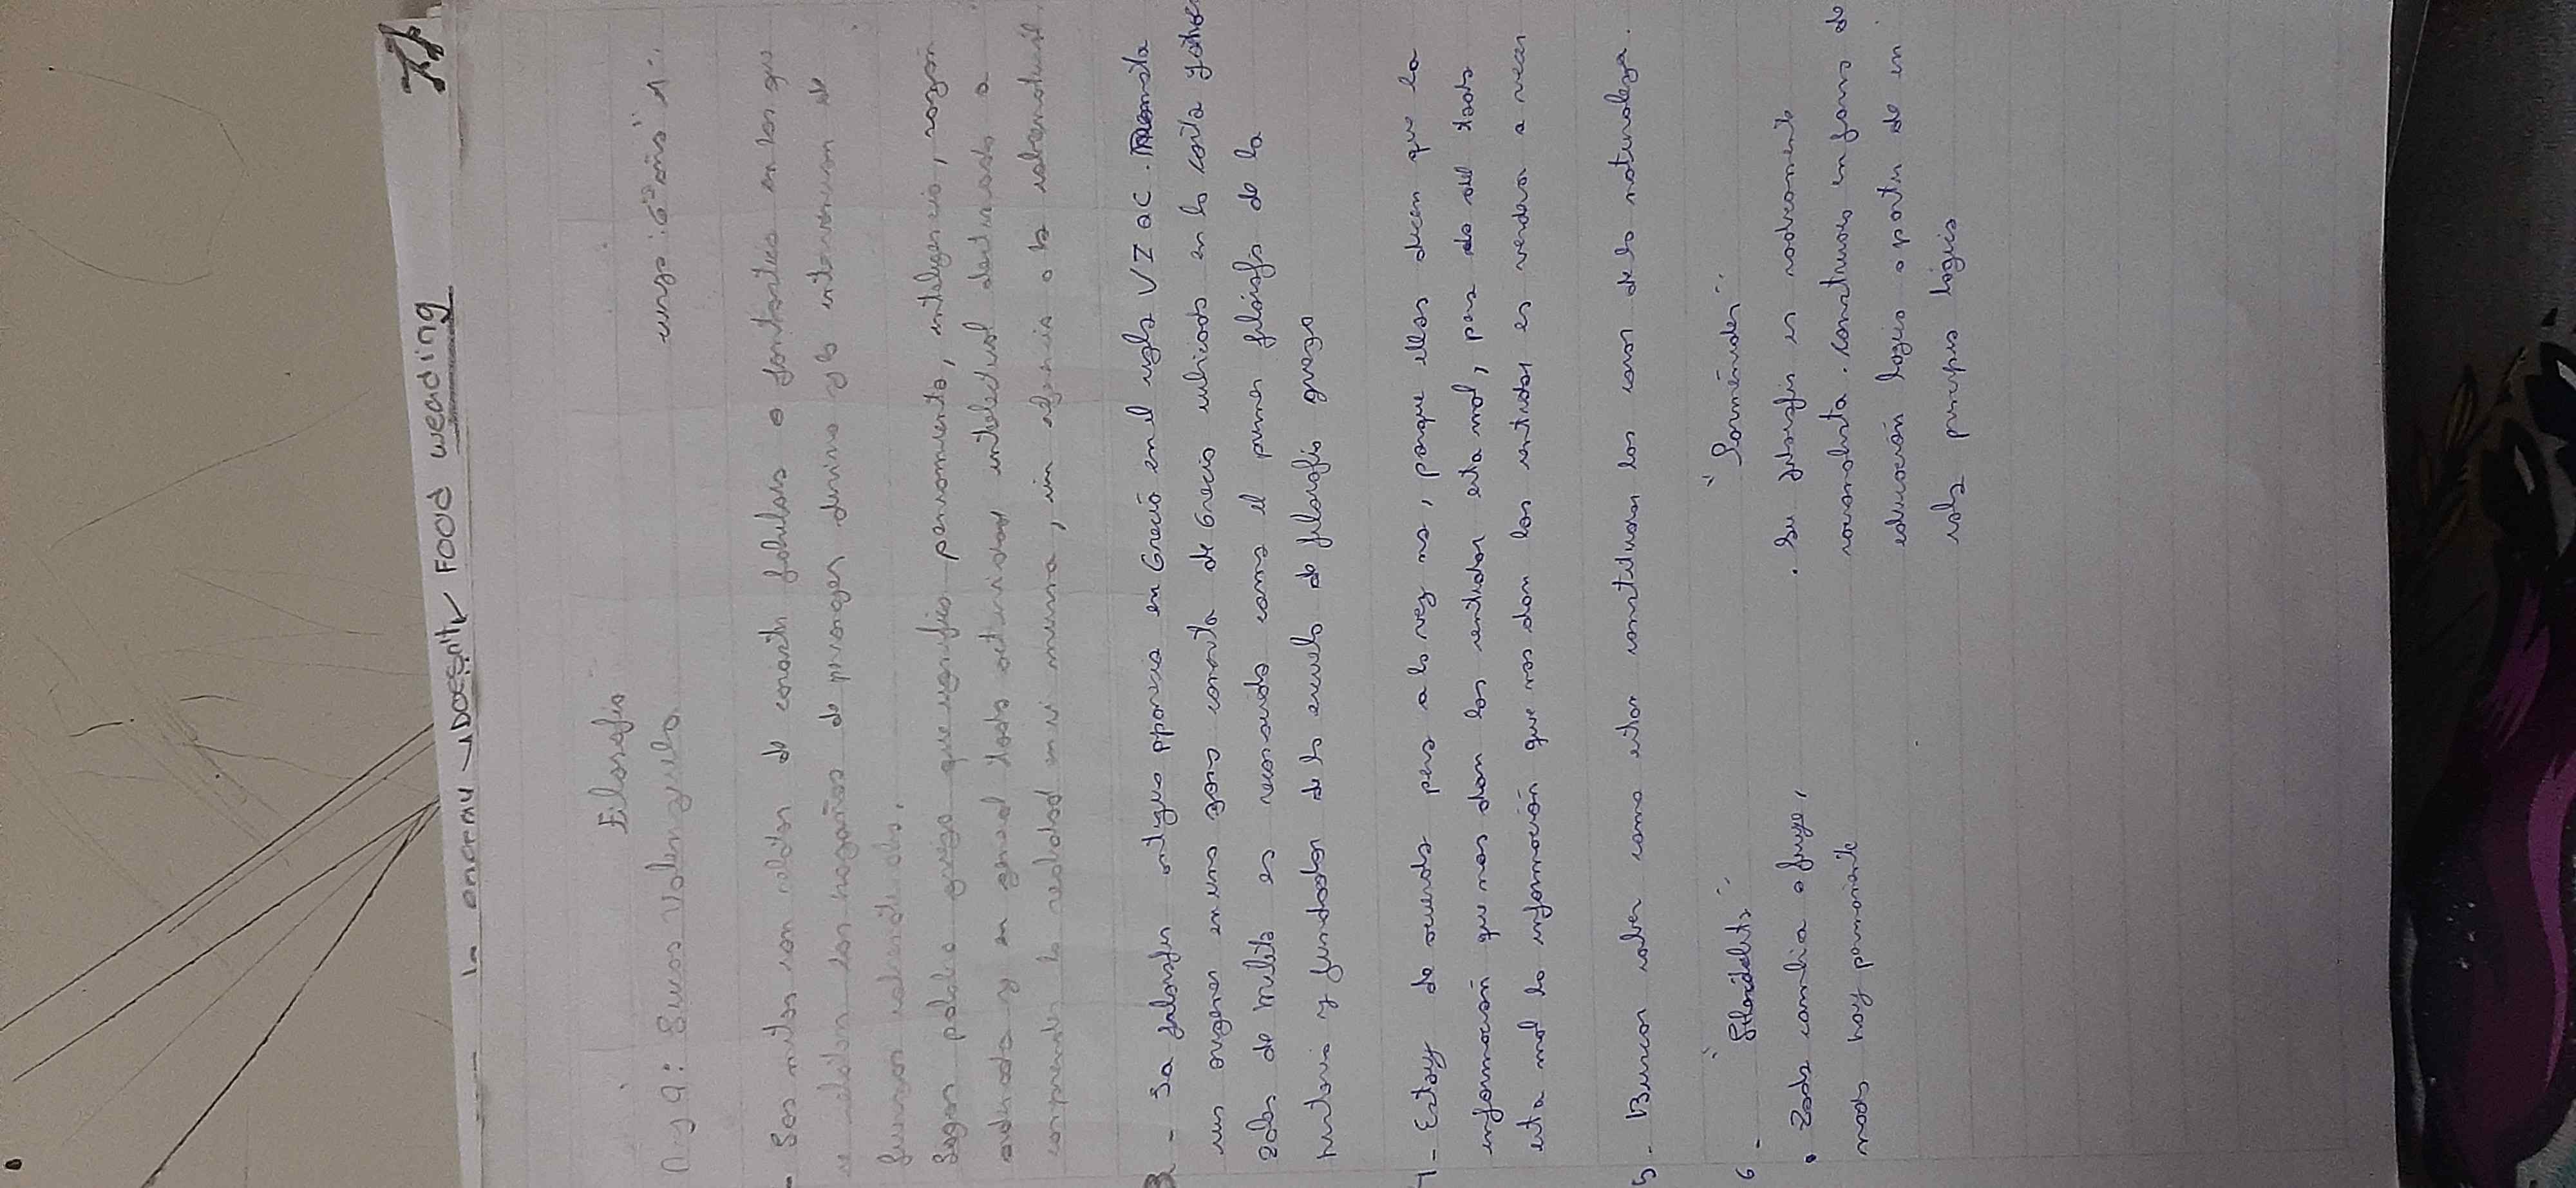 la enemy DOESNT FOOD weading
Filosofia
N y A: Lucas Valenzuela curso: 6to año "A"
- Los mitos son relatos de carácter fabuloso o fantástico en los que
se relatan las hazañas de personajes divinos y la intervención de
fuerzas sobrenaturales.
Logos palabra griega que significa pensamiento, inteligencia, razón
y en general toda actividad intelectual destinada a
comprender la realidad en si misma, sin a lo sobrenatural.
3 - La filosofia antigua apareció en Grecia en el siglo VI aC.
sus origenes en una zona de Grecia ubicada en la costa
Tales de Mileto es reconocido como el primer filósofo de la
historia y fundador de la escuela de filosofia griega
4 - Estoy de acuerdo pero a la vez no, porque ellos dicen que la
información que nos dan los sentidos esta mal, pero no del todo
esta mal la información que nos dan los sentidos es verdera a veces
5 - Buscar saber como estan constituidas las cosas de la naturaleza.
6 - " " "Parménides":
• Todo cambia o fluye,
nada hay permanente
• Su filosofia es radicamente
racionalista. construcción en forma de
educación logica a partir de un
solo principio logico